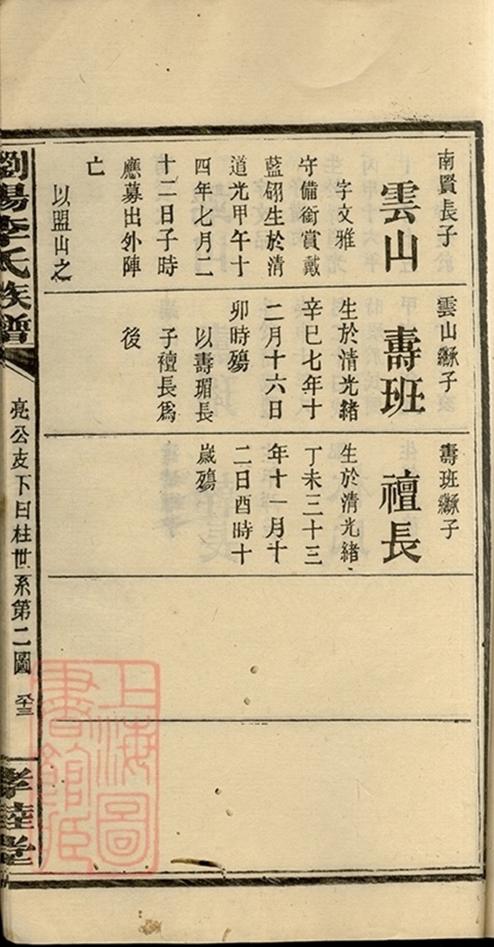 南賢長子
雲山
字文雅
守備銜賞戴
藍翎生於清
道光甲午十
四年七月二
十二日子時
應募出外陣
亡
以盟山之
雲山繼子
壽班
生於清光緒
辛巳七年十
二月十六日
卯時殤
以壽瑂長
子禮長為
後
壽班繼子
禮長
生於清光緒
丁未三十三
年十一月十
二日酉時十
歲殤
瀏陽李氏族譜
亮公支下日柱世系第二圖
孝睦堂
上海圖書館藏